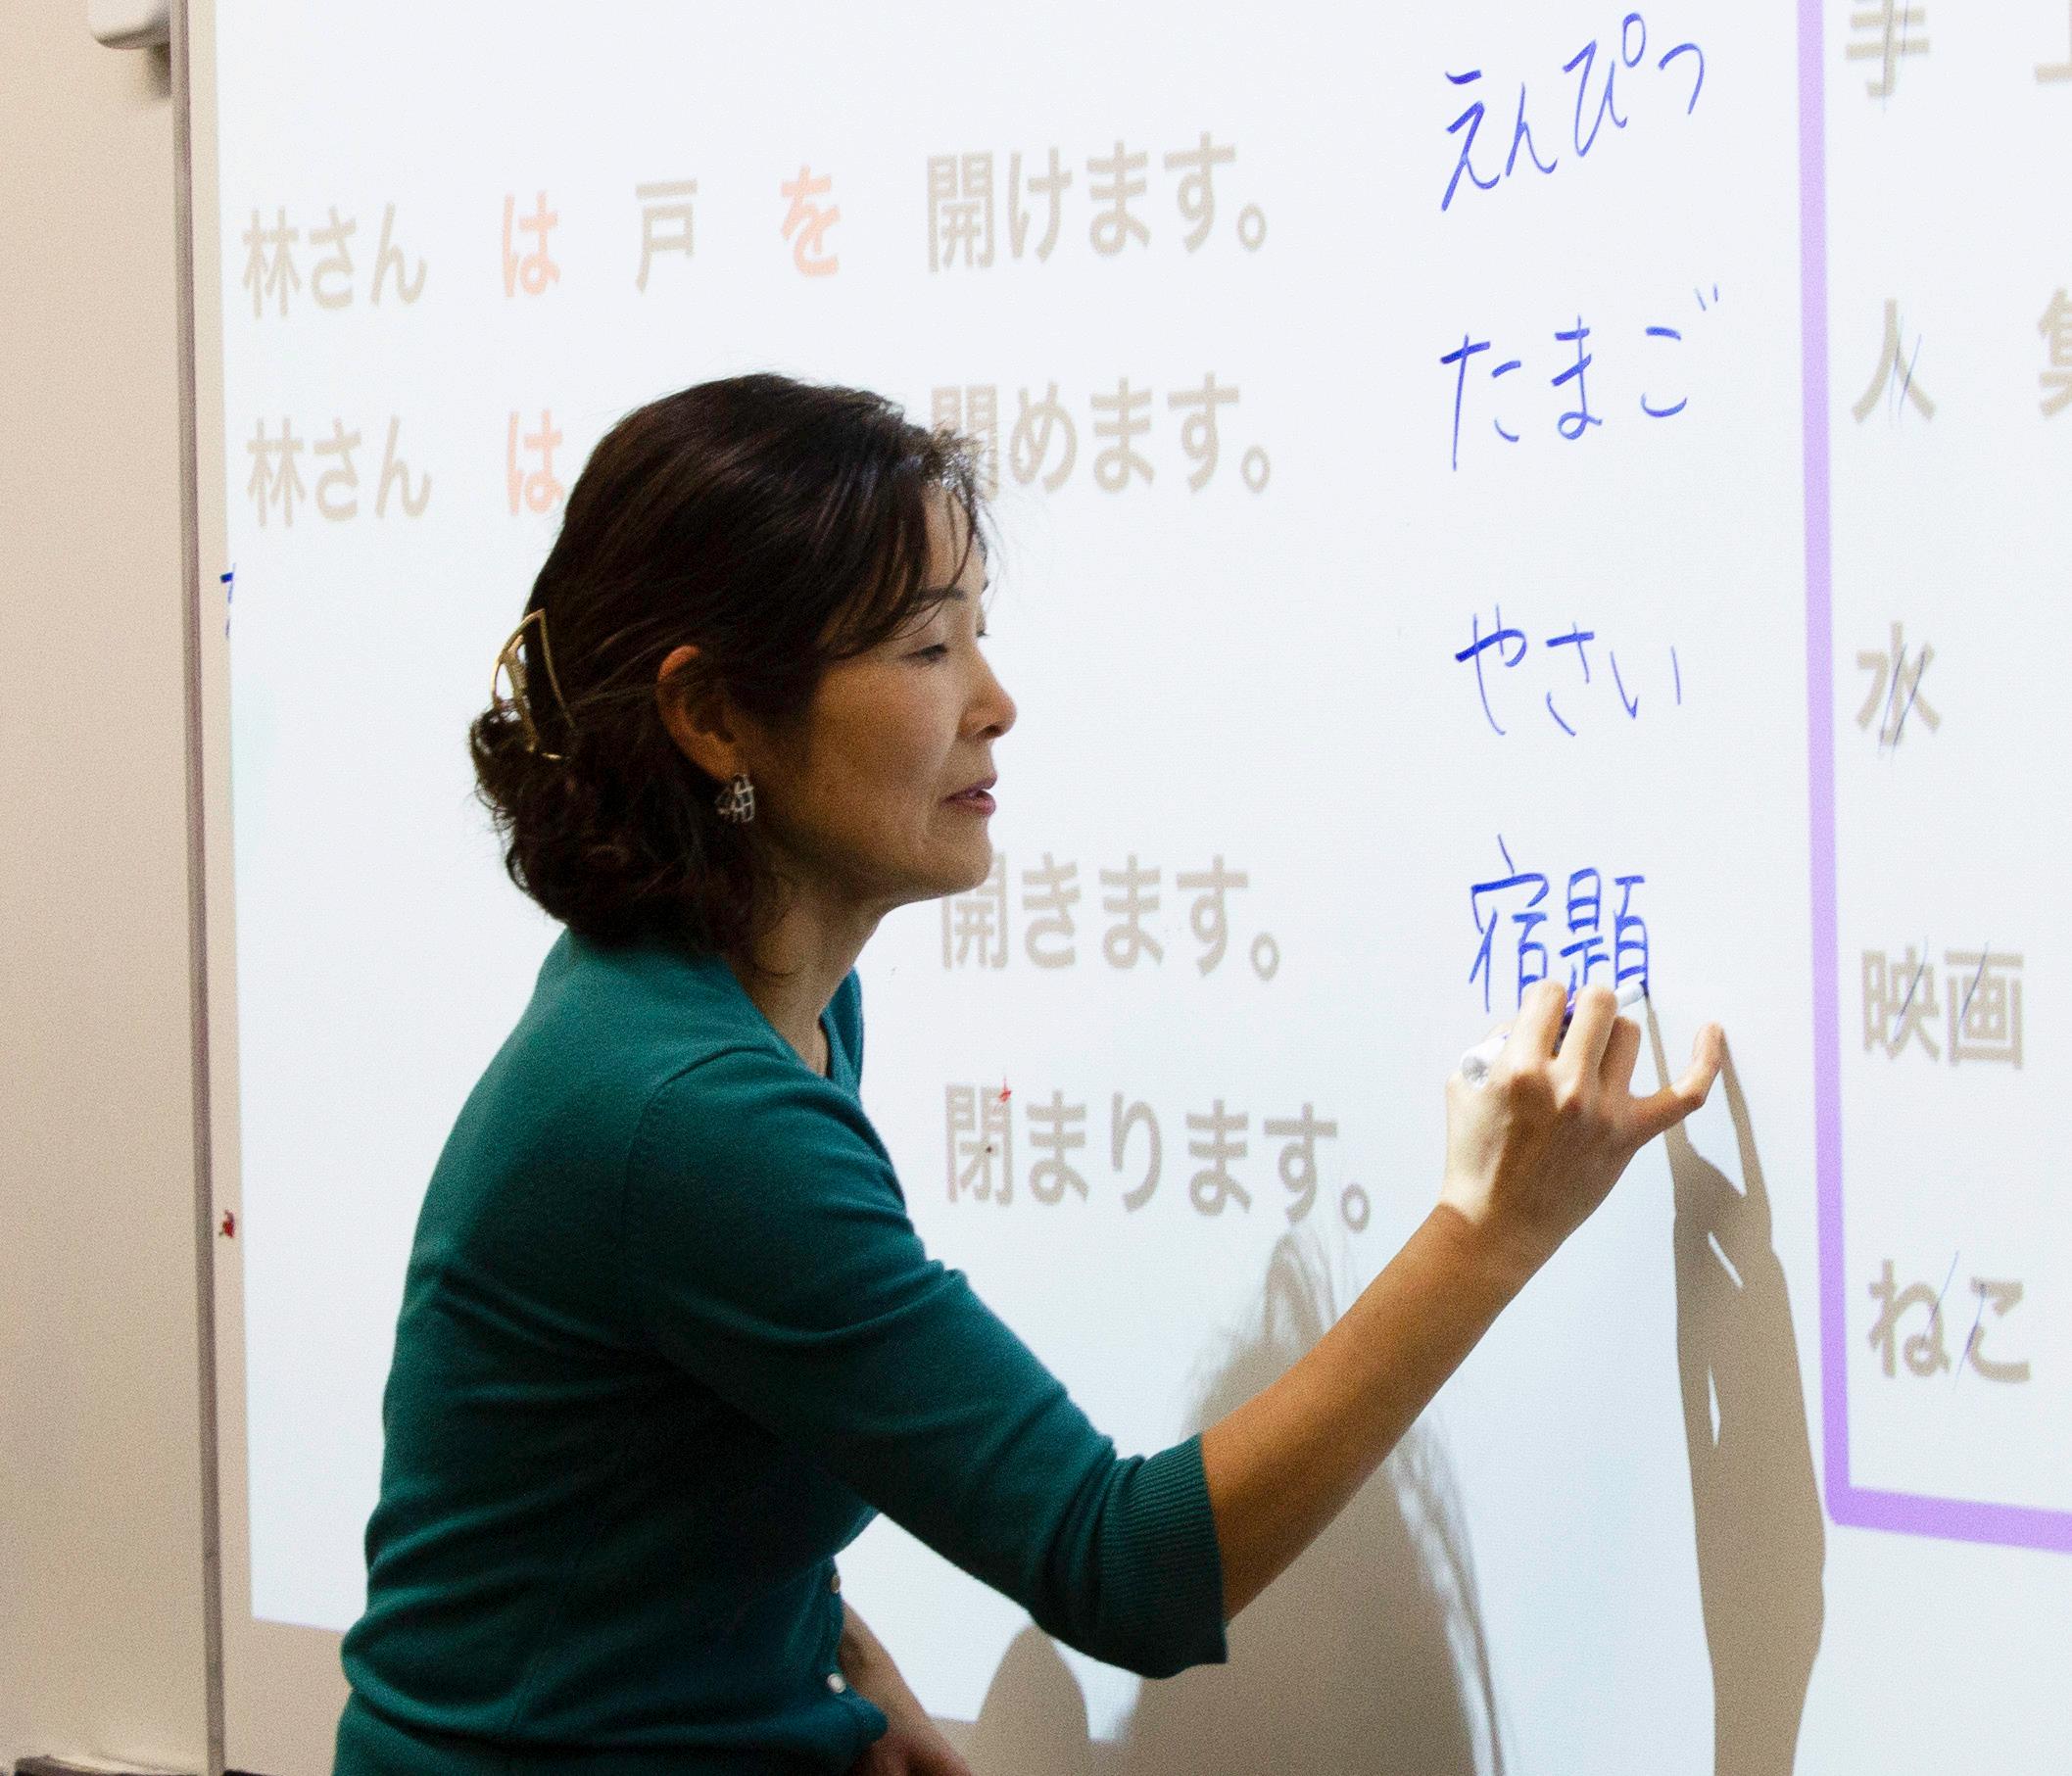 林さん は 戸 を 開けます。
林さん は 開めます。
開きます。
閉まります。
えんぴつ
たまご
やさい
宿題
手
人
水
映画
ねこ